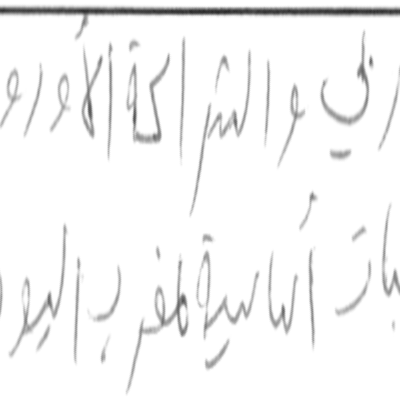 والشراكة الأورو
أساسية لمغرب اليو